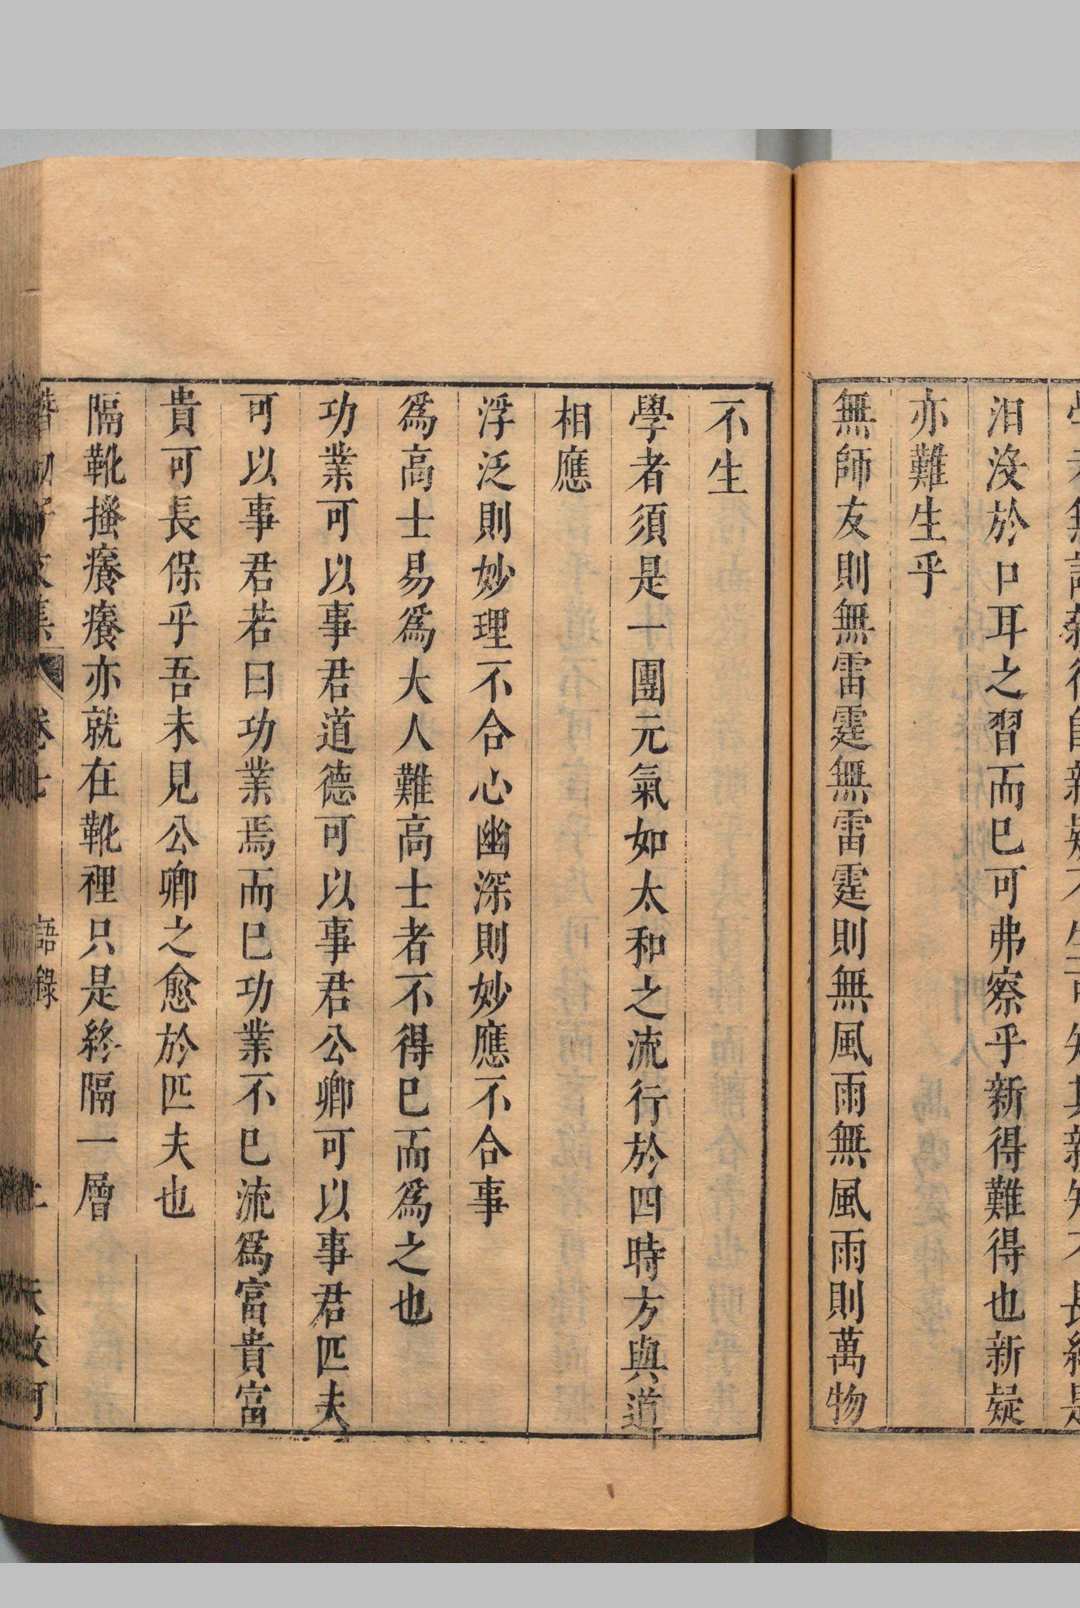 汨沒於口耳之習而已可弗察乎新得難得也新疑
亦難生乎
無師友則無雷霆無雷霆則無風雨無風雨則萬物
不生
學者須是一團元氣如太和之流行於四時方與道
相應
浮泛則妙理不合心幽深則妙應不合事
爲高士易爲大人難高士者不得已而爲之也
功業可以事君道德可以事君公卿可以事君匹夫
可以事君若曰功業焉而已功業不已流爲富貴富
貴可長保乎吾未見公卿之愈於匹夫也
隔靴搔癢癢亦就在靴裡只是終隔一層
語錄